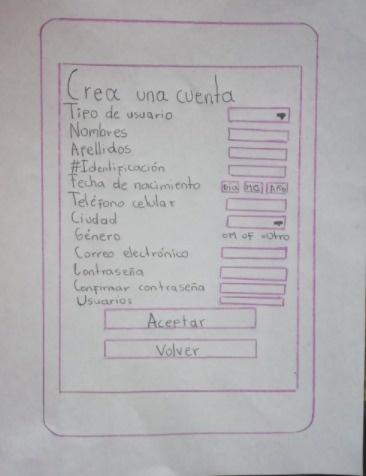 Crea una cuenta
Tipo de usuario
Nombres
Apellidos
#Identificación
Fecha de nacimiento Día Mes Año
Teléfono celular
Ciudad
Género oM oF oOtro
Correo electrónico
Contraseña
Confirmar contraseña
Usuarios
Aceptar
Volver